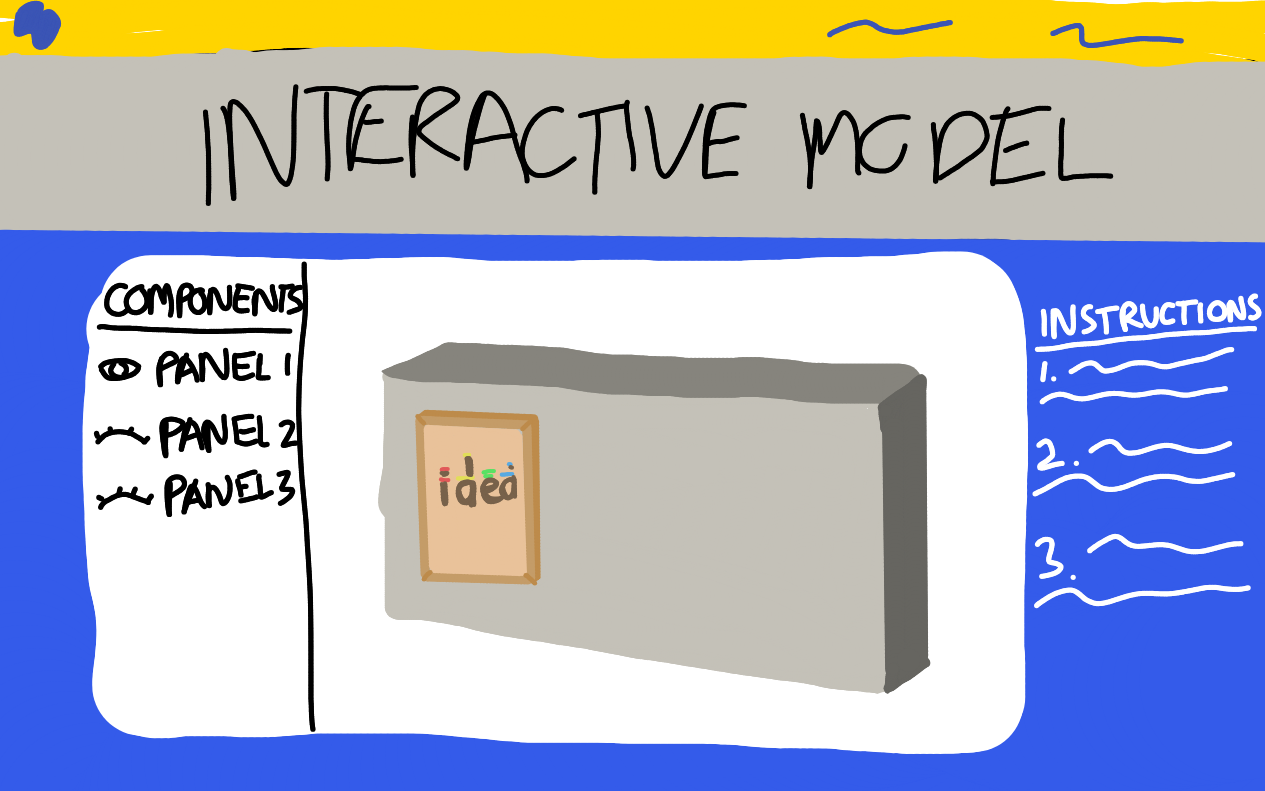 INTERACTIVE MODEL
COMPONENTS
PANEL 1
PANEL 2
PANEL 3
idea
INSTRUCTIONS
1.
2.
3.